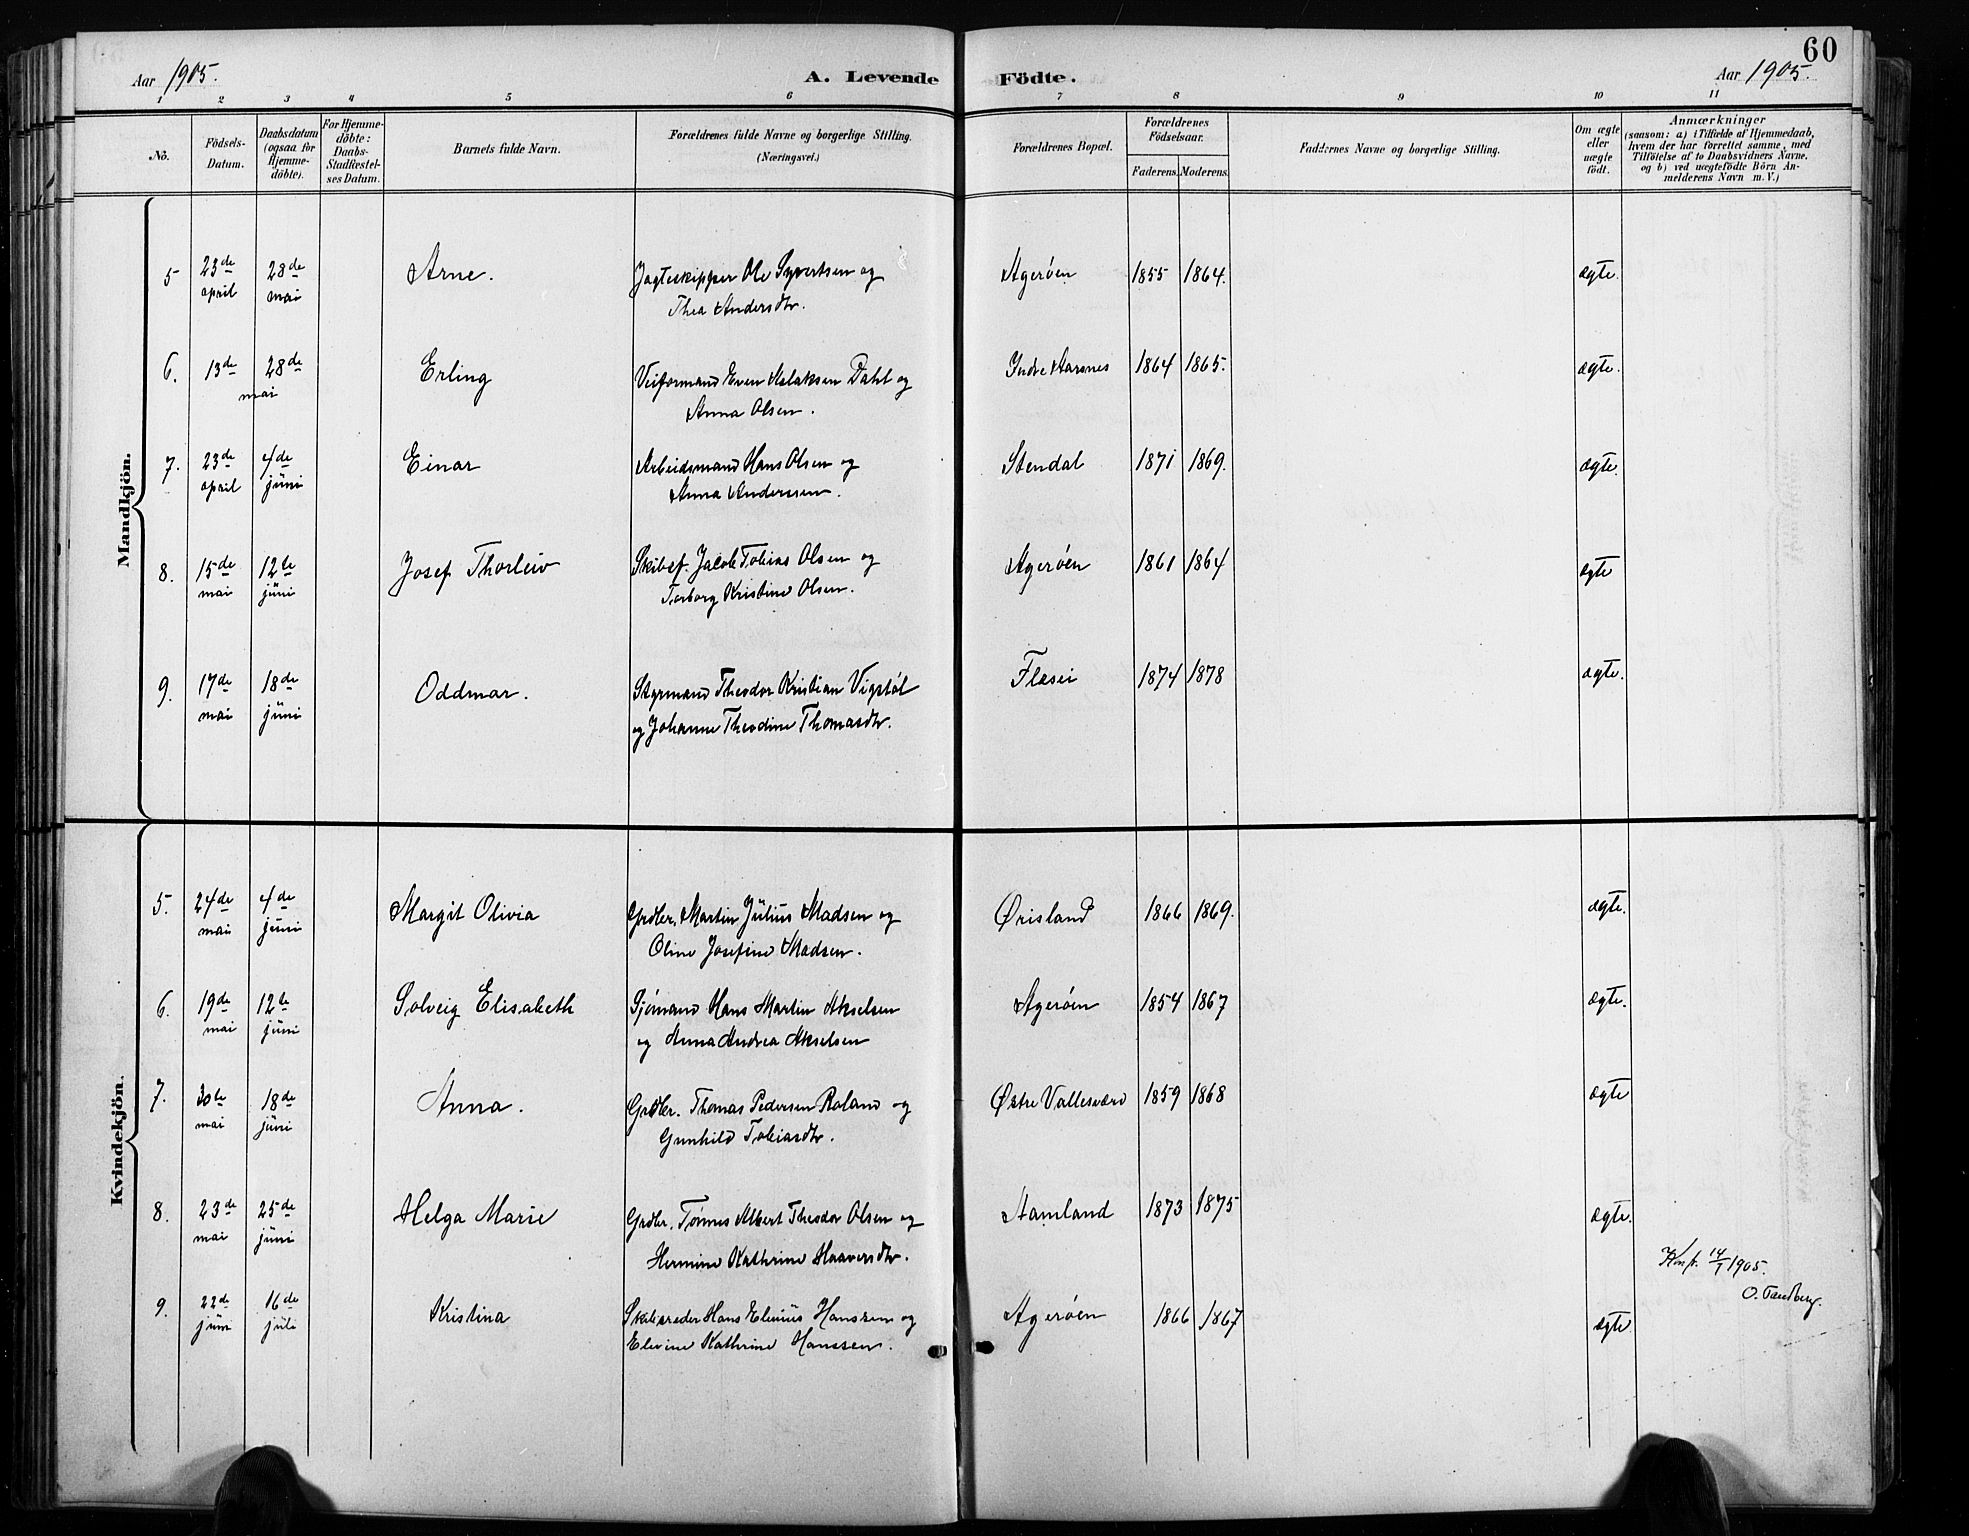 60
Aar 1905. A. Levende Födte. Aar 1905.
1 2 3 4 5 6 7 8 9 10 11
No.
Födsels-Datum.
Daabsdatum (ogsaa for Hjemme-döbte).
For Hjemme-döbte: Daabs-Stadfæstel-ses Datum.
Barnets fulde Navn.
Forældrenes fulde Navne og borgerlige Stilling.
(Næringsvei.)
Forældrenes Bopæl.
Forældrenes Födselsaar.
Faderens. Moderens.
Faddernes Navne og borgerlige Stilling.
Om ægte eller uægte födt.
Anmærkninger
(saasom: a) i Tilfælde af Hjemmedaab,
hvem der har forrettet samme, med
Tilföielse af to Daabsvidners Navne,
og b) ved uægtefödte Börn An-
melderens Navn m. V.)
Mandkjön.
5 23de april 28de mai Arne. Jagteskipper Ole Syvertsen og Agerøen 1855 1864. ægte.
Thea Andersdtr.
6. 13de 28de mai Erling Veiformand Even Aslaksen Dahl og Indre Aarsnes 1864 1865. ægte.
Anna Olsen.
7. 23de april 4de juni Einar Arbeidsmand Hans Olsen og Stendal 1871 1869. ægte.
Anna Anderssen.
8. 15de mai 12te juni Josef Thorleiv Skibsf. Jacob Tobias Olsen og Agerøen 1861 1864 ægte
Torborg Kristine Olsen.
9. 17de mai 18de juni Oddmar. Styrmand Theodor Kristian Vigstøl Flasei 1874 1878 ægte.
og Johanne Theodine Thomasdtr.
Kvindekjön.
5. 24de mai 4de juni Margit Olivia Grdbr. Martin Julius Madsen og Ørisland 1866 1869. ægte.
Oline Josefine Madsen.
6. 19de mai 12te juni Solveig Elisabeth Sjømand Hans Martin Akselsen Agerøen 1854 1867 ægte.
og Anna Andrea Akselsen
7. 30te mai 18de juni Anna. Grdbr. Thomas Pedersen Roland og Østre Vallesværd 1859 1868 ægte
Gunhild Tobiasdtr.
8. 23de mai 25de juni Helga Marie Grdbr. Tønnes Albert Theodor Olsen og Aamland 1873 1875 ægte.
Hermine Kathrine Haaversdtr.
9. 22de juni 16de juli Kristina Skibsreder Hans Elenius Hanssen og Agerøen 1866 1867 ægte
Elevine Kathrine Hanssen.
Konf. 14/7 1905.
O. Tandberg.